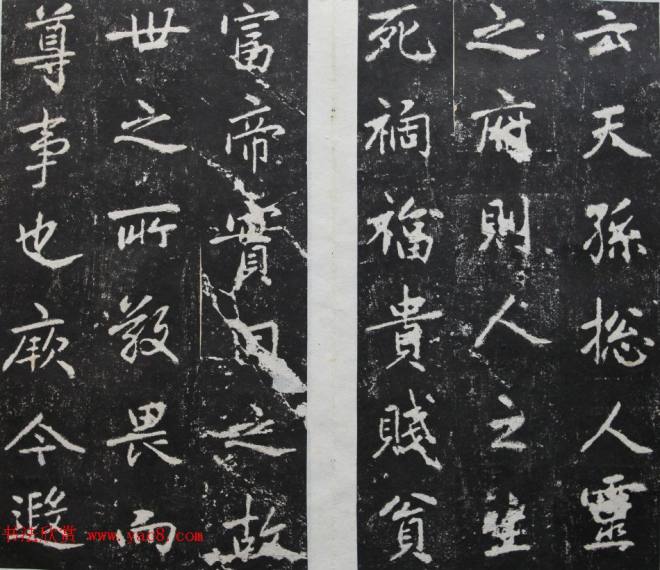 云天孫揔人靈
之府則人之生
死禍福貴賤貧
富帝實司之故
世之所敬畏而
尊事也厥今遐
书法欣赏 www.yac8.com